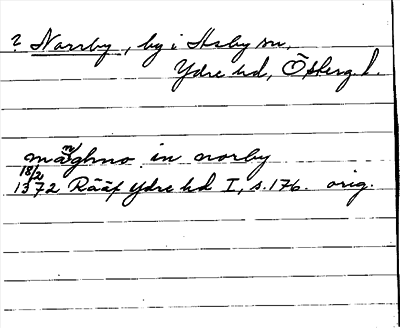 ? Norrby, by i Asby sn,
Ydre hd, Östergl.
maghno in norby
18/2 1372 Rääf Ydre hd I, s. 176. orig.